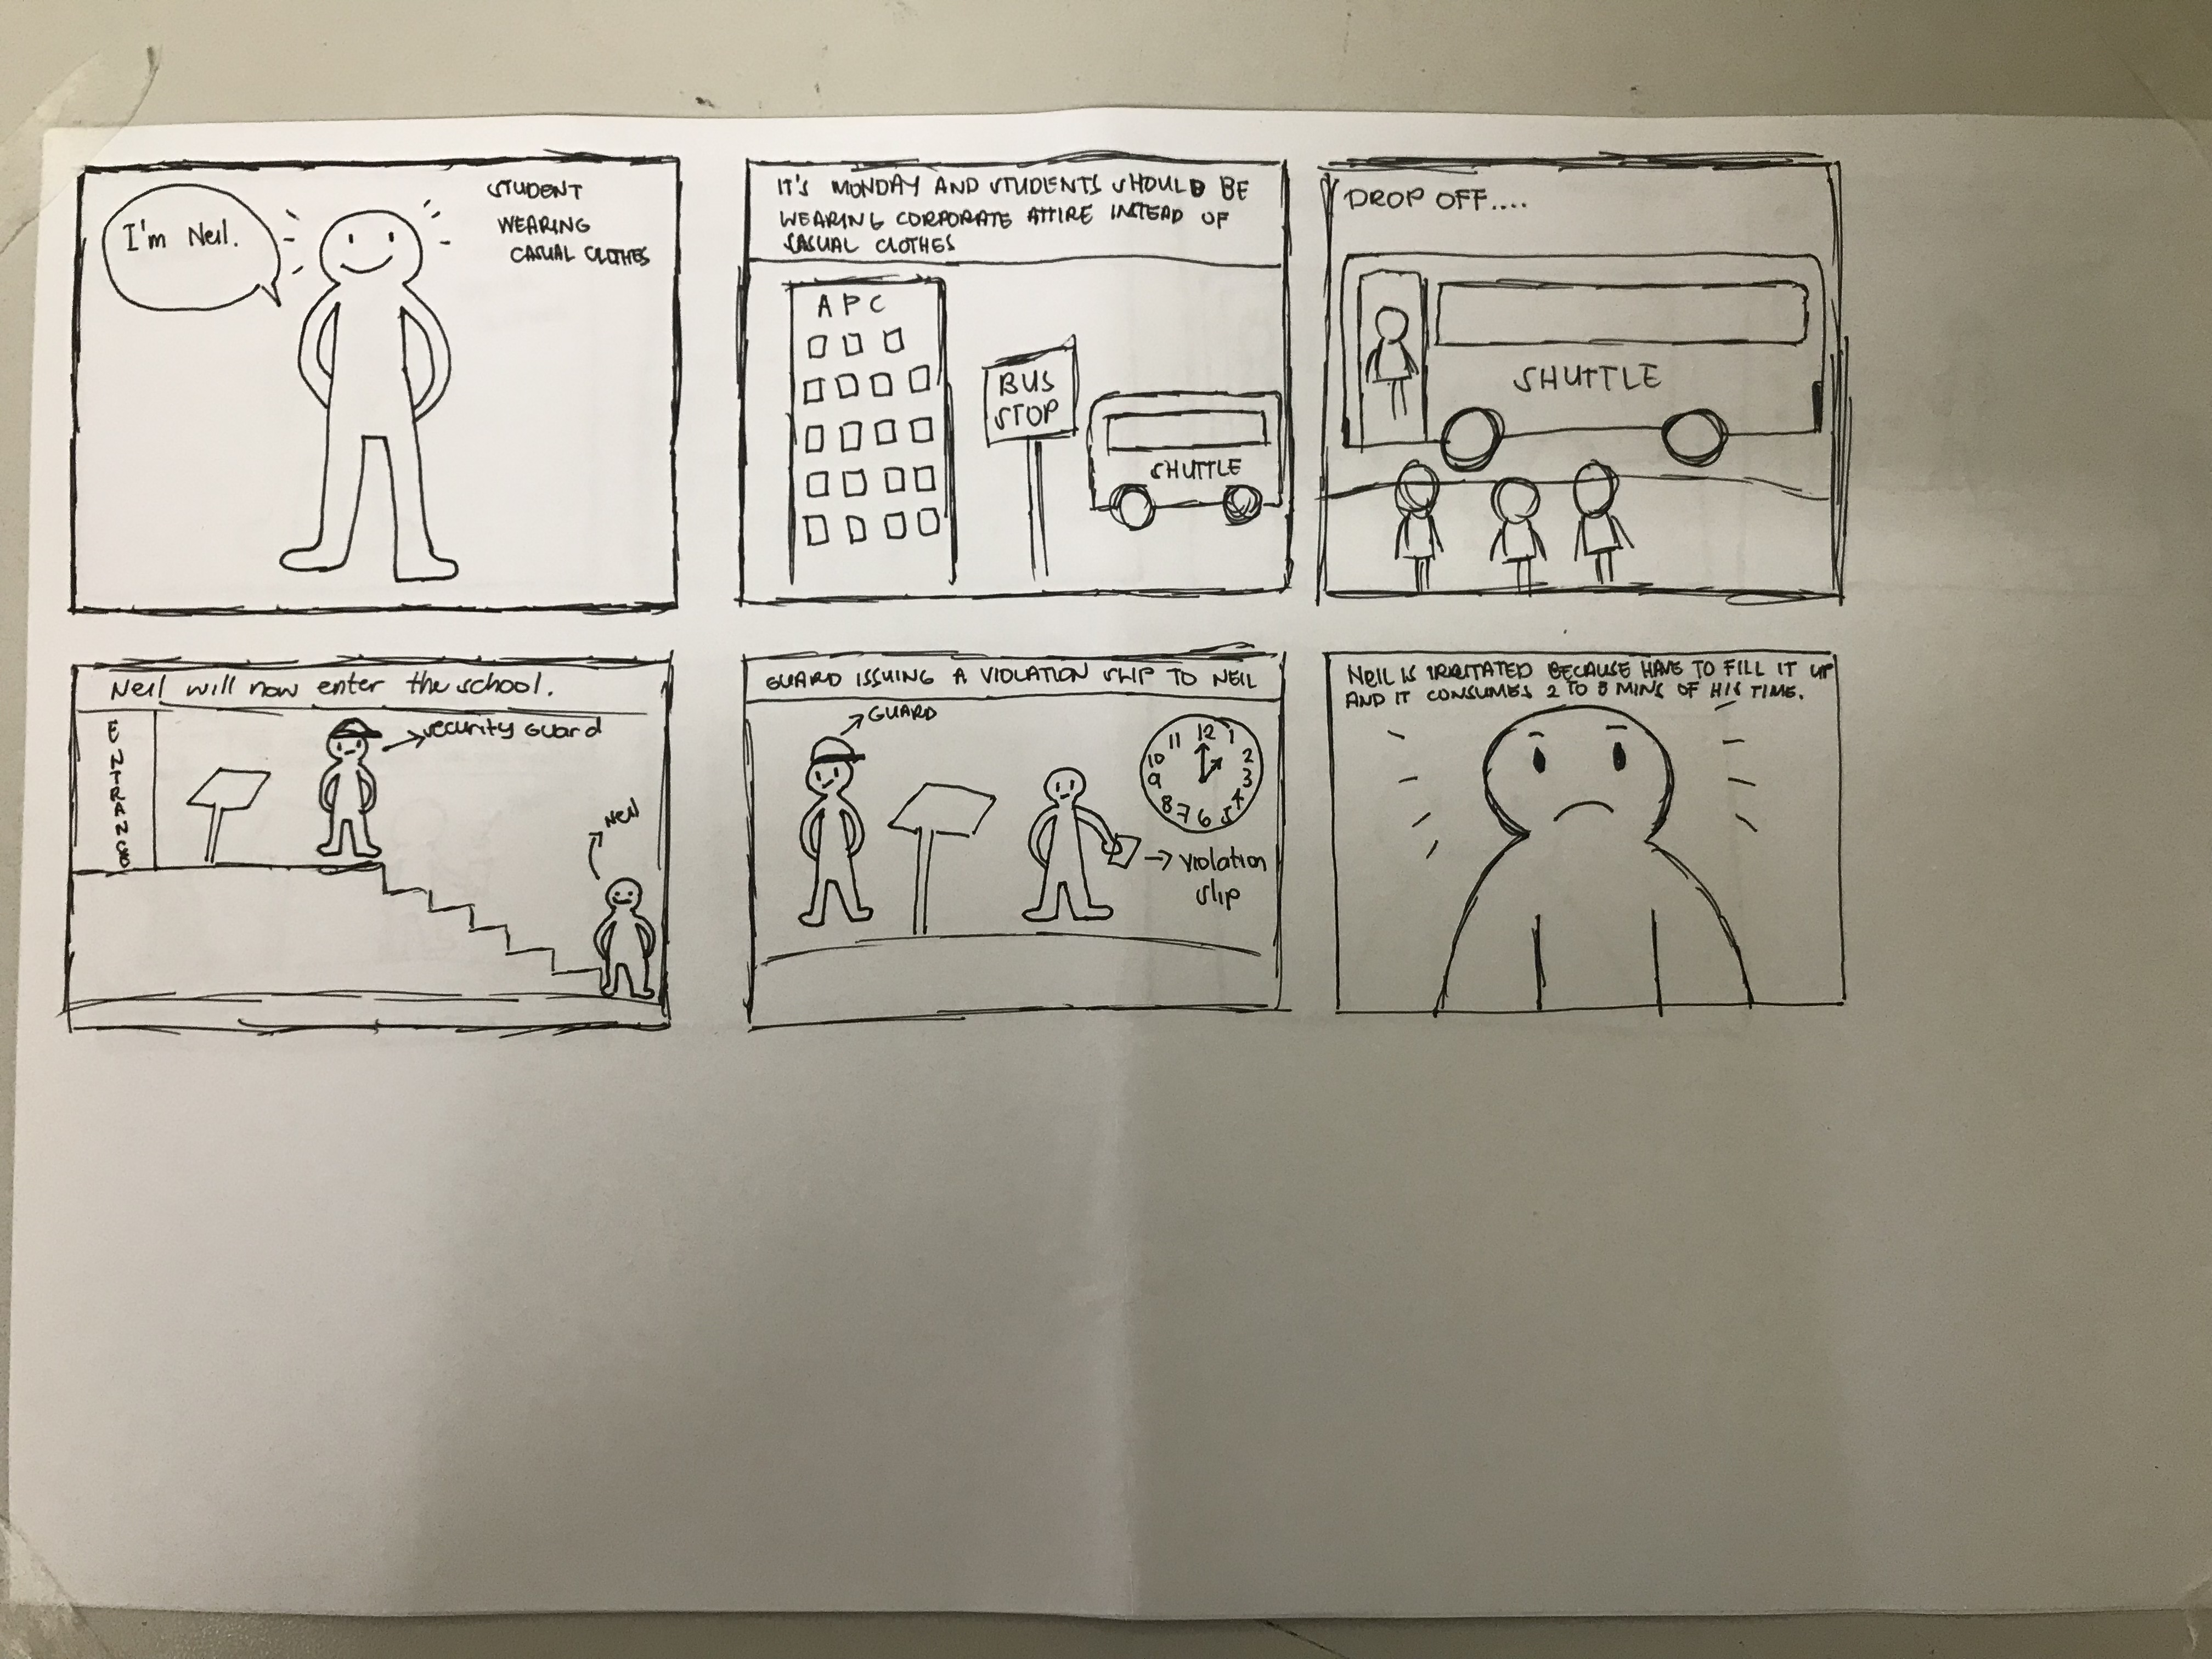 I'm Neil.
STUDENT
WEARING
CASUAL CLOTHES
IT'S MONDAY AND STUDENTS SHOULD BE
WEARING CORPORATE ATTIRE INSTEAD OF
CASUAL CLOTHES
APC
BUS
STOP
SHUTTLE
DROP OFF....
SHUTTLE
Neil will now enter the school.
ENTRANCE
security guard
Neil
GUARD ISSUING A VIOLATION SLIP TO NEIL
GUARD
12 1 2 3 4 5 6 7 8 9 10 11
violation
slip
NEIL IS IRRITATED BECAUSE HAVE TO FILL IT UP
AND IT CONSUMES 2 TO 3 MINS OF HIS TIME.